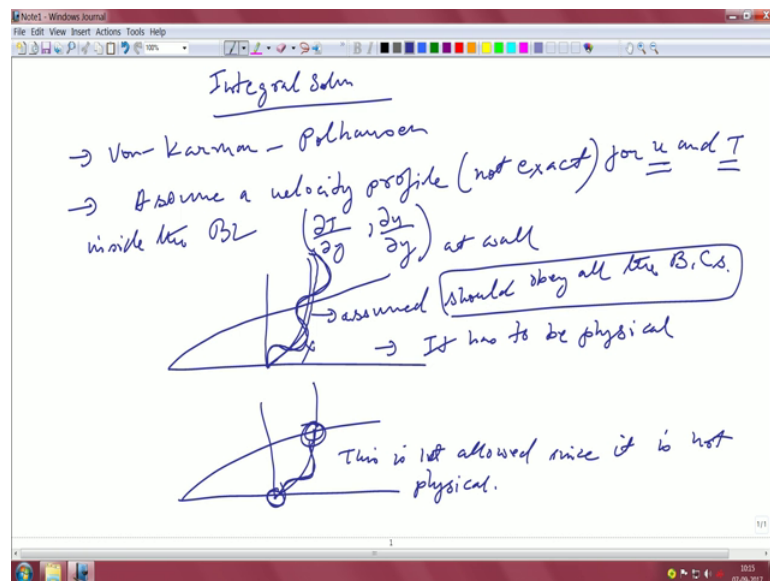 Note1 - Windows Journal
File Edit View Insert Actions Tools Help
100%
Integral Soln
→ Von-Karman - Polhausen
→ Assume a velocity profile (not exact) for u and T
inside the BL (∂T/∂y, ∂u/∂y) at wall
→ assumed should obey all the B.Cs.
→ It has to be physical
This is not allowed since it is not
physical.
1/1
1
10:15
07-09-2017